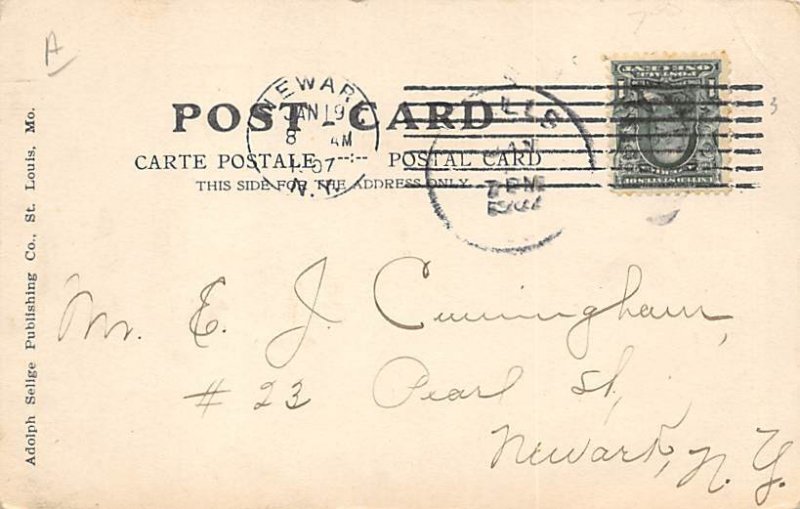 A
NEWARK
JAN 19
8 AM
1907
N.Y.
POST CARD
CARTE POSTALE POSTAL CARD
THIS SIDE FOR THE ADDRESS ONLY
Mr. E. J. Cunningham,
# 23 Pearl St,
Newark, N. Y.
Adolph Selige Publishing Co., St. Louis, Mo.